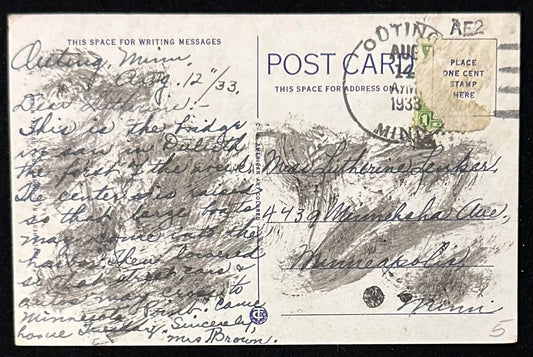 THIS SPACE FOR WRITING MESSAGES
Outing, Minn.
Aug. 12"/33.
Dear :-
This is the bridge
we saw in Duluth
the first of the week.
The center was raised
so that large boats
may come into the
harbor then lowered
so that street cars &
autos may cross to
Minnesota Point. Came
home Tuesday. Sincerely,
Mrs Brown.
POST CARD
THIS SPACE FOR ADDRESS ONLY
OUTING
AUG
12
1933
MINN
PLACE
ONE CENT
STAMP
HERE
AE2
Miss Lutherine
4439 Minnehaha Ave,
Minneapolis
Minn
5